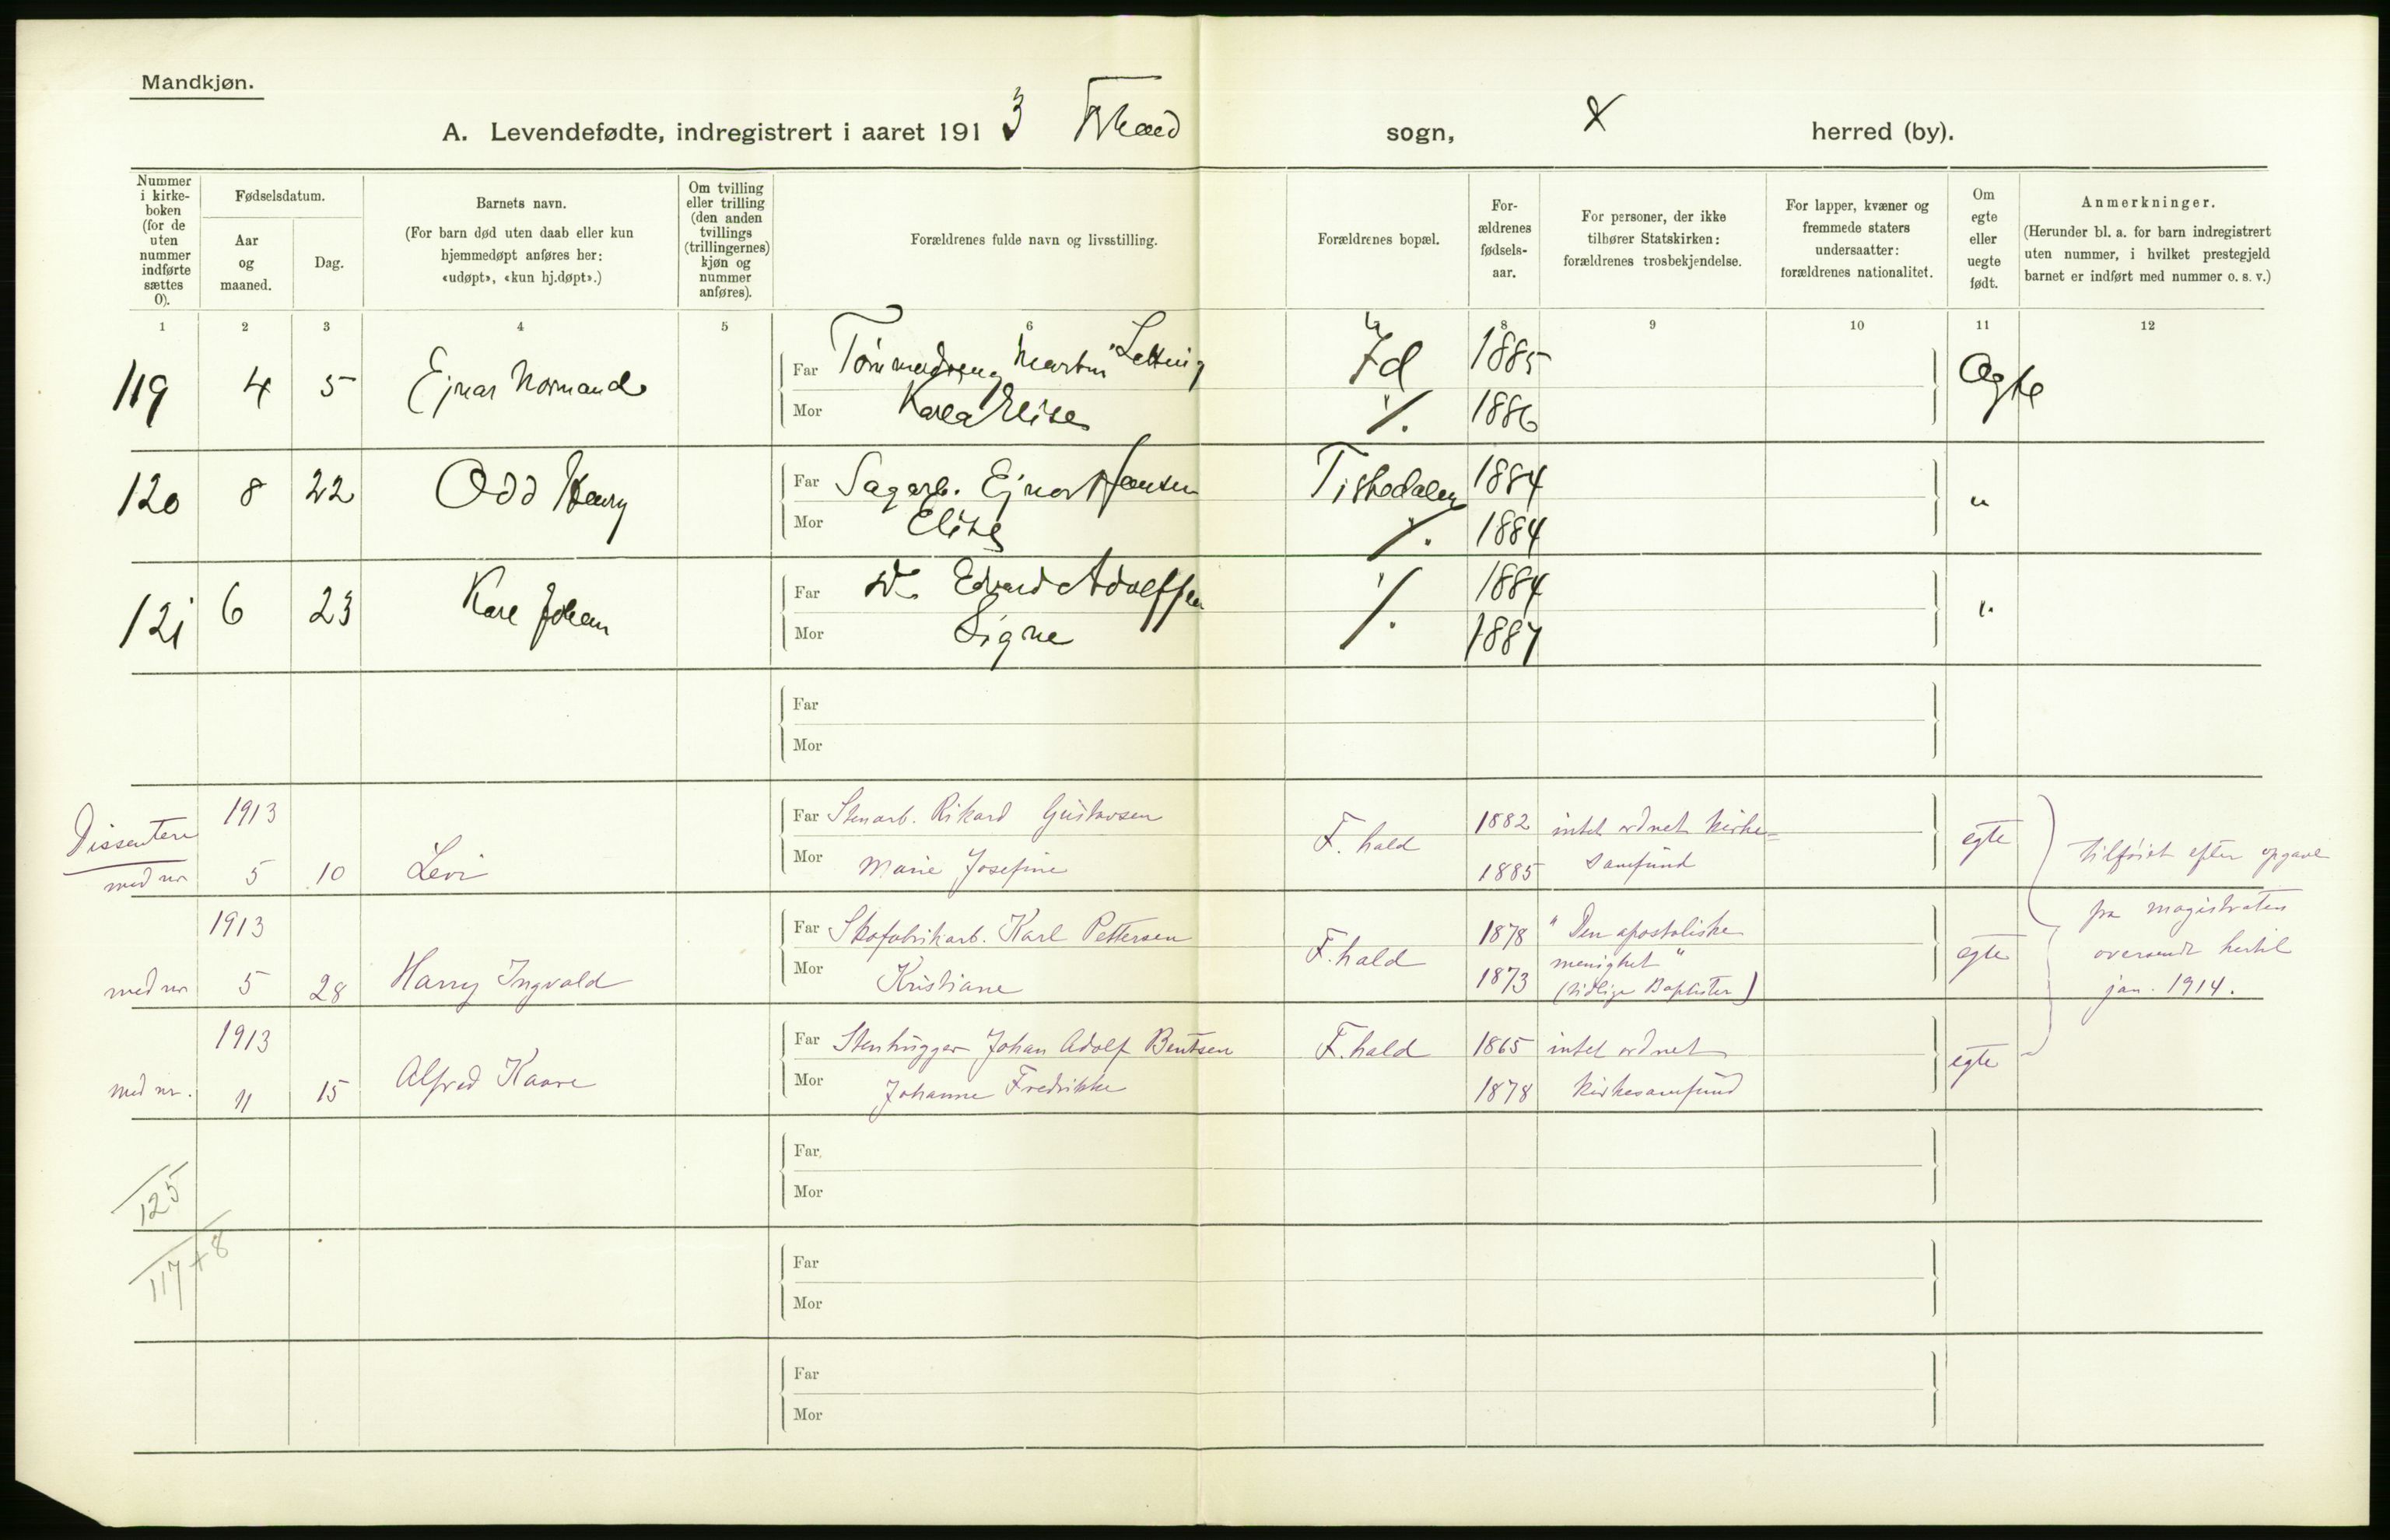 Mandkjøn.
A. Levendefødte, indregistrert i aaret 1913 Frhald sogn, herred (by).
Nummer i kirke-boken (for de uten nummer indførte sættes 0).
Fødselsdatum.
Aar og maaned.
Dag.
Barnets navn.
(For barn død uten daab eller kun hjemmedøpt anføres her: «udøpt», «kun hj.døpt».)
Om tvilling eller trilling (den anden tvillings (trillingernes) kjøn og nummer anføres).
Forældrenes fulde navn og livsstilling.
Forældrenes bopæl.
For-ældrenes fødsels-aar.
For personer, der ikke tilhører Statskirken: forældrenes trosbekjendelse.
For lapper, kvæner og fremmede staters undersaatter: forældrenes nationalitet.
Om egte eller uegte født.
Anmerkninger.
(Herunder bl. a. for barn indregistrert uten nummer, i hvilket prestegjeld barnet er indført med nummer o. s. v.)
1 2 3 4 5 6 7 8 9 10 11 12
119 4 5 Ejnar Normand Far Martin Id 1885 Ægte
Mor Karla Elise ⁒ 1886
120 8 22 Odd Henry Far Sagarb. Ejnar Hansen Tistedalen 1884 "
Mor Elise ⁒ 1884
121 6 23 Karl Johan Far Do Edvard Adolfsen ⁒ 1884 "
Mor Signe 1887
Far
Mor
Dissentere
med nr 1913 5 10 Levi Far Stenarb. Rikard Gustavsen F.hald 1882 intet ordnet kirke= egte
Mor Marie Josefine 1885 samfund
tilføiet efter opgave
fra magistraten
oversendt hertil
jan. 1914.
med nr 1913 5 28 Harry Ingvald Far Skofabrikarb. Karl Pettersen F.hald 1878 "Den apostoliske egte
Mor Kristiane 1873 menighet"
(tidlige Baptister)
med nr. 1913 11 15 Alfred Kaare Far Stenhugger Johan Adolf Bentsen F.hald 1865 intet ordnet egte
Mor Johanne Fredrikke 1878 kirkesamfund
Far
Mor
125
117+8
Far
Mor
Far
Mor